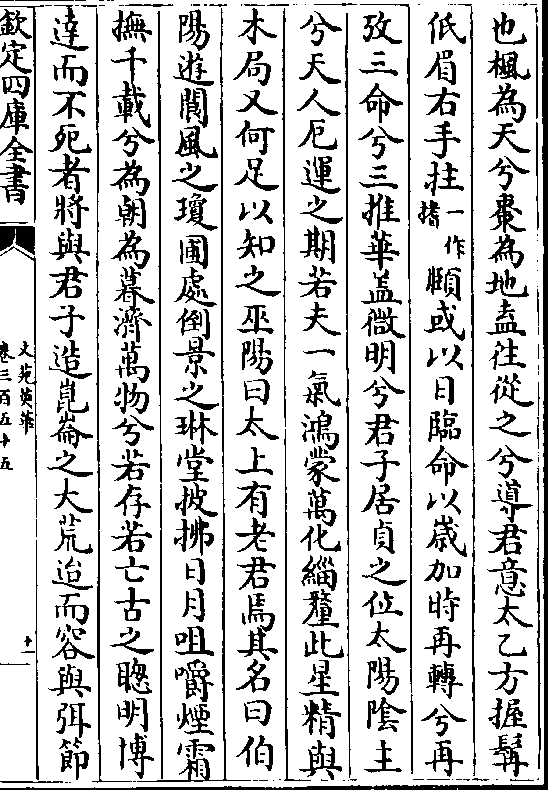 也楓為天兮棗為地盍往從之兮導君意太乙方握髯
低眉右手拄一作揩頤或以日臨命以歲加時再轉兮再
攷三命兮三推華蓋微明兮君子居貞之位太陽陰主
兮天人厄運之期若夫一氣鴻蒙萬化緇釐此星精與
木局又何足以知之巫陽曰太上有老君焉其名曰伯
陽遊閬風之瓊圃處倒景之琳堂披拂日月咀嚼煙霜
撫千載兮為朝為暮濟萬物兮若存若亡古之聰明博
達而不死者將與君子造崑崙之大荒迨而容與弭節
欽定四庫全書
文苑英華
卷三百五十五
十一